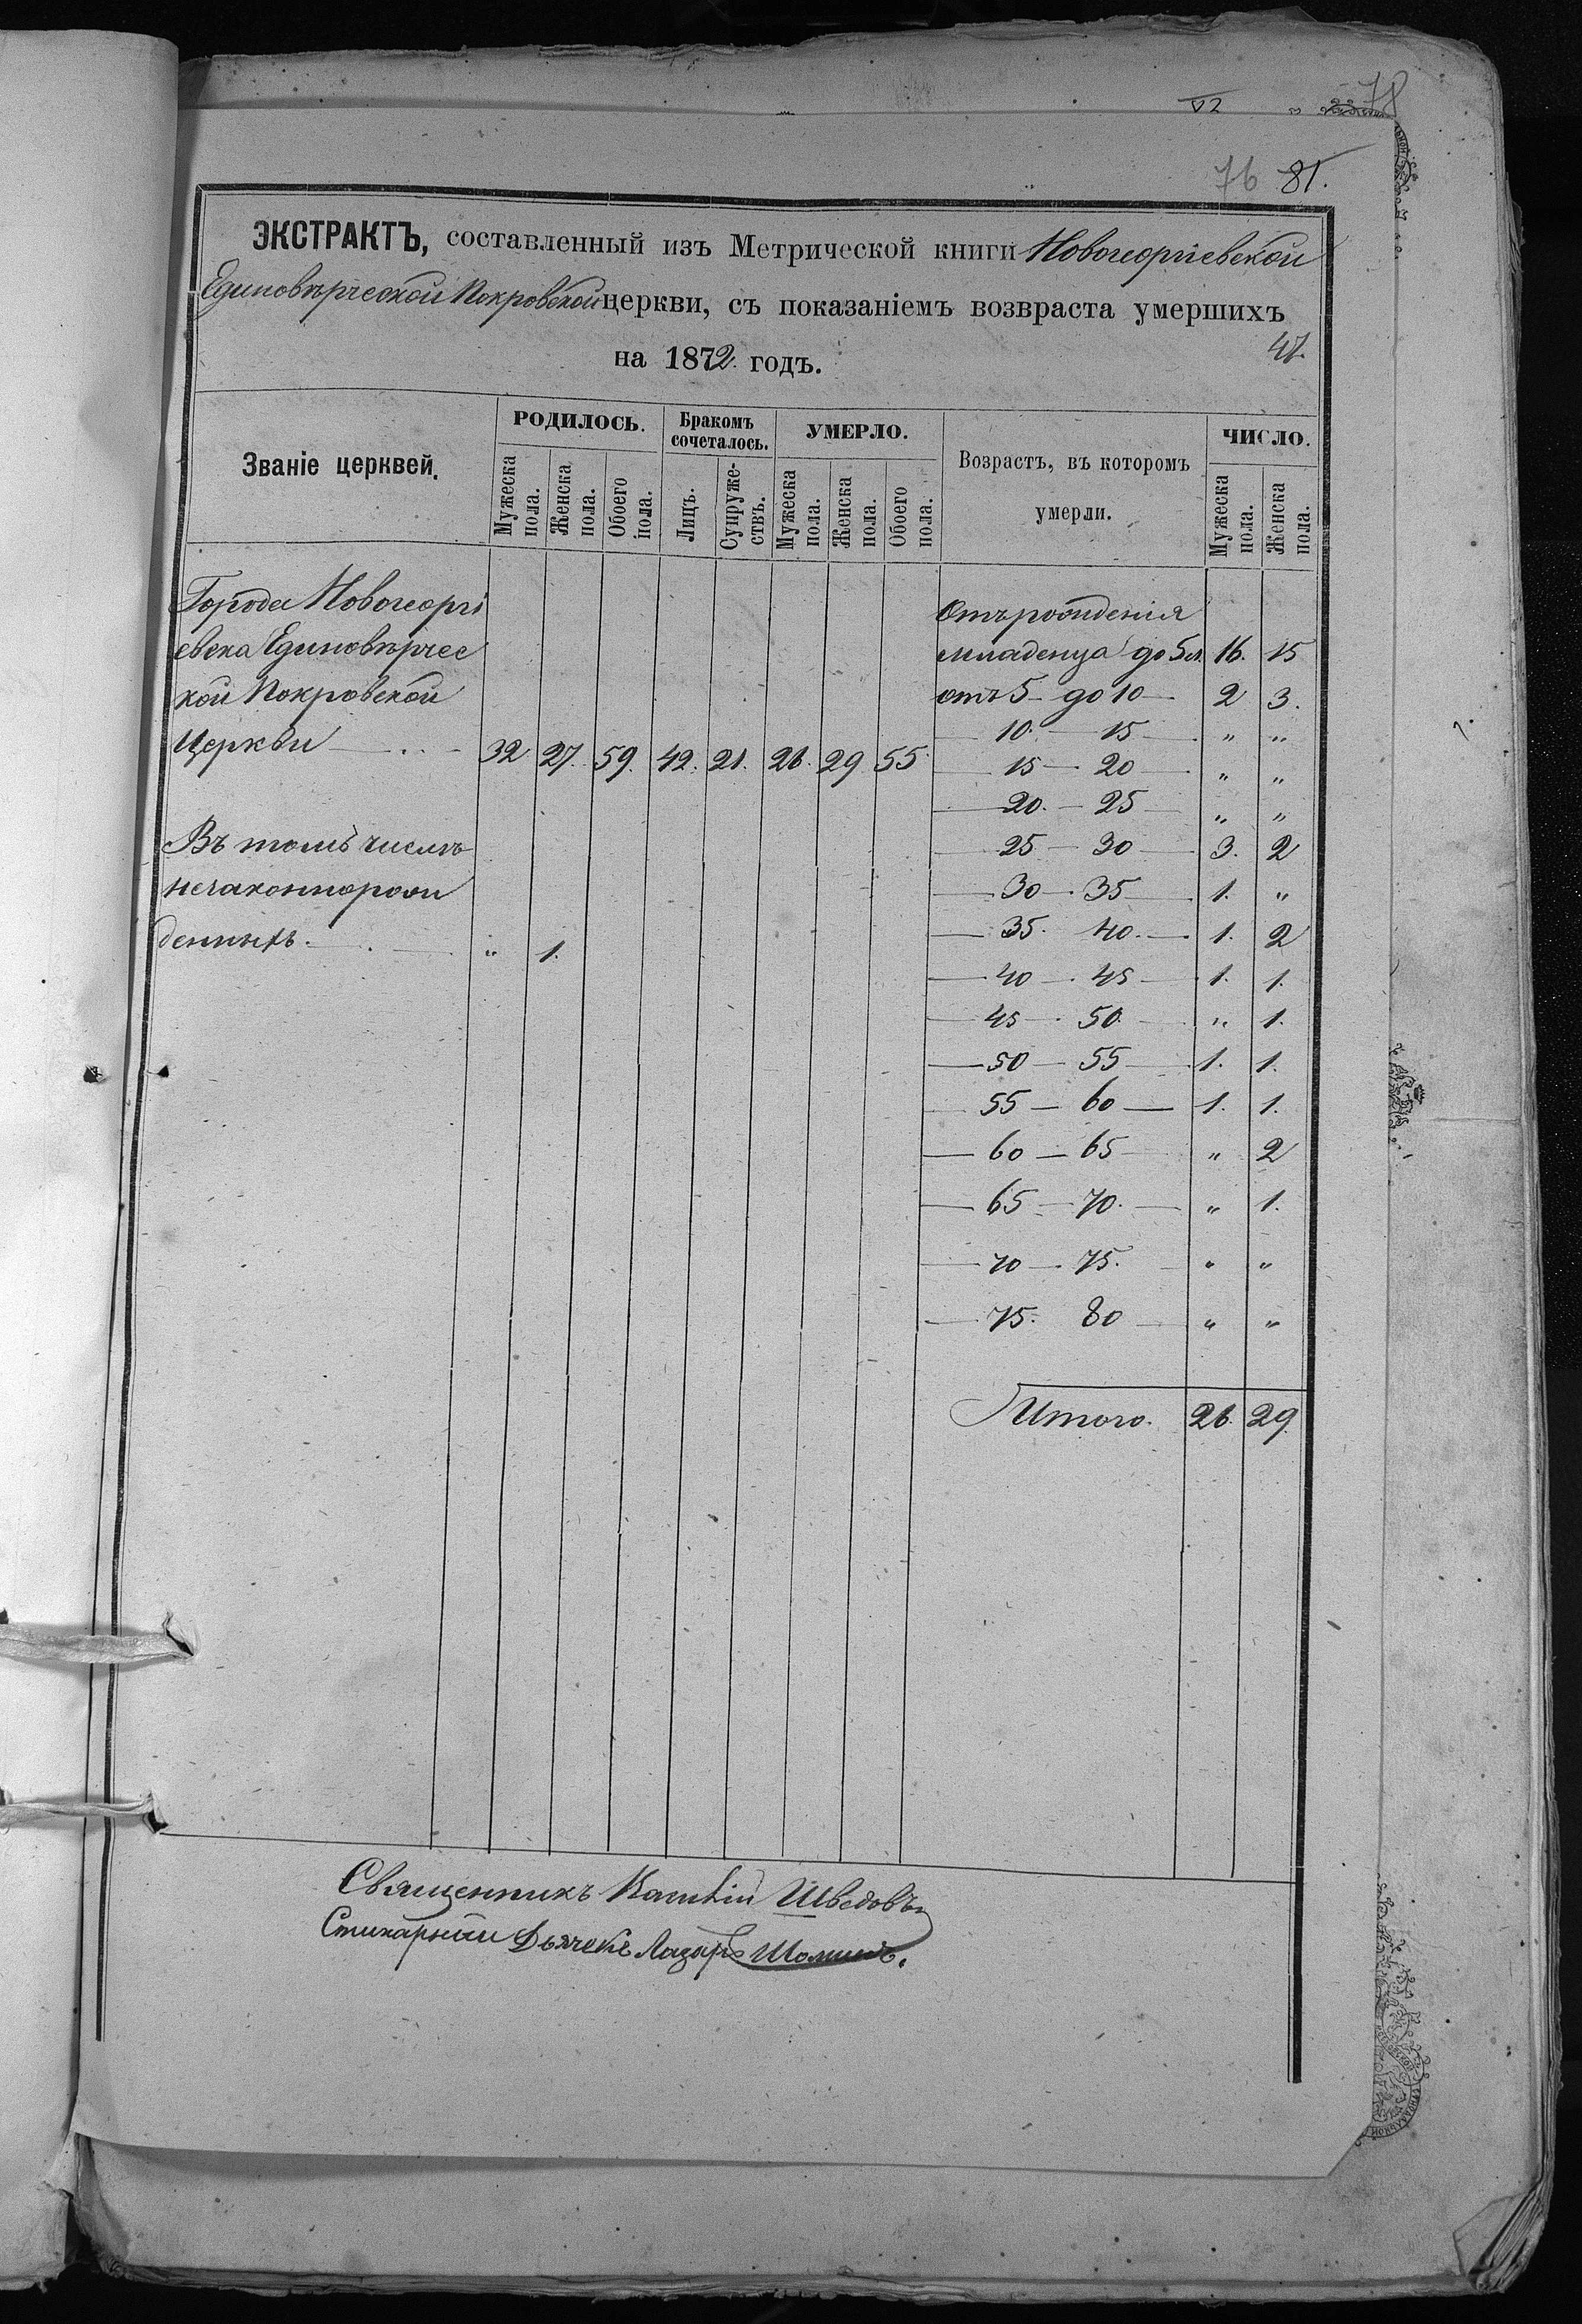 78
76 81.
ЭКСТРАКТЪ, составленный изъ Метрической книги Новогеоргіевской
Единовѣрческой Покровской церкви, съ показаніемъ возвраста умершихъ
на 1872 годъ.
47.
Званіе церквей.
РОДИЛОСЬ.
Мужеска пола.
Женска пола.
Обоего пола.
Бракомъ сочеталось.
Лицъ.
Супруже-ствъ.
УМЕРЛО.
Мужеска пола.
Женска пола.
Обоего пола.
Возрастъ, въ которомъ
умерли.
ЧИСЛО.
Мужеска пола.
Женска пола.
Города Новогеоргі
евска Единовѣрчес
кой Покровской
Церкви 32 27. 59. 42. 21. 26. 29 55
Въ томъ числѣ
незаконнорож
денныхъ. " 1.
Отъ рожденія
младенца до 5 л. 16. 15
отъ 5 - до 10 — 2 3.
— 10. — 15 — " "
— 15 — 20 — " "
— 20. — 25 — " "
— 25 — 30 — 3. 2
— 30 — 35 — 1. "
— 35. 40. — 1. 2
— 40 — 45 — 1. 1.
— 45 — 50. — " 1.
— 50 — 55 — 1. 1.
— 55 — 60 — 1. 1.
— 60 — 65 — " 2
— 65 — 70. — " 1.
— 70 — 75. — " "
— 75. 80 — " "
Итого. 26. 29.
Священникъ Шведовъ
Стихарный Дьячекъ Лазарь